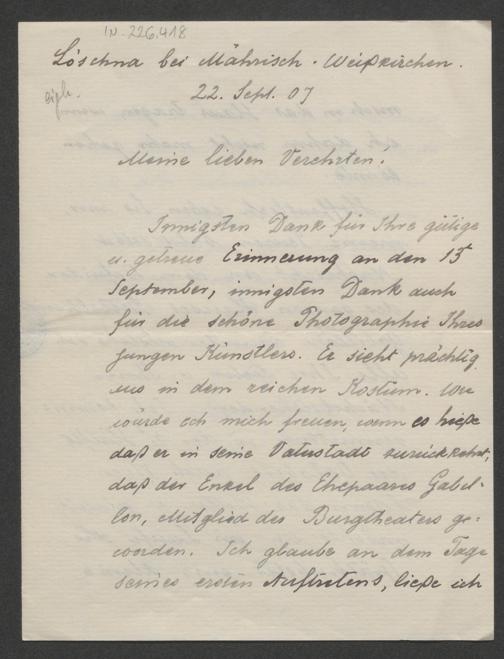 IN-226.418
Löschna bei Mährisch-Weißkirchen.
22. Sept. 07
Meine lieben Verehrten!
Innigsten Dank für Ihre gütige
u. getreue Erinnerung an den 13t
September, innigsten Dank auch
für die schöne Photographie Ihres
jungen Künstlers. Er sieht prächtig
aus in dem reichen Kostüm. Wie
würde ich mich freuen, wenn es hieße
daß er in seine Vaterstadt zurückkehrt,
daß der Enkel des Ehepaares Gabil-
lon, Mitglied des Burgtheaters ge-
worden. Ich glaube an dem Tage
seines ersten Auftretens, ließe ich